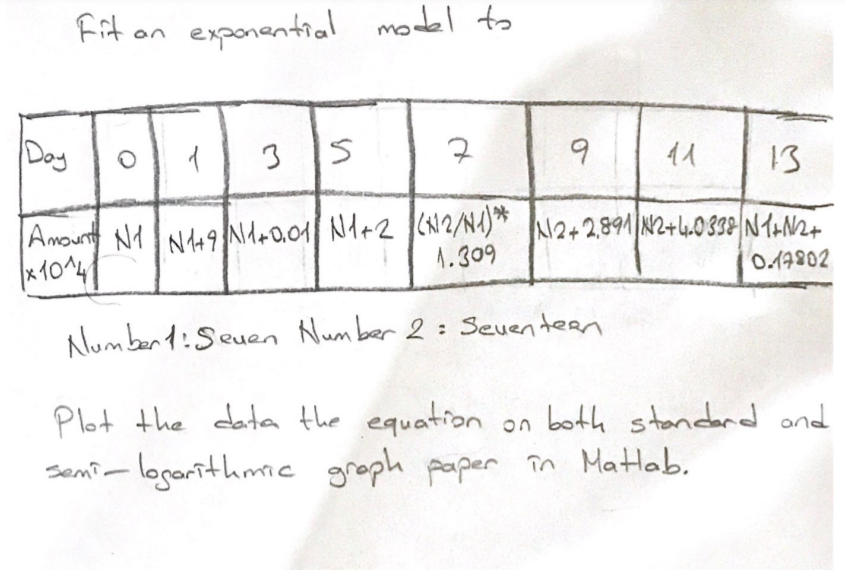 Fit an exponential model to
Day 0 1 3 5 7 9 11 13
Amount x10^4 N1 N1+9 N1+0.01 N1+2 (N2/N1)* 1.309 N2+2.891 N2+4.0338 N1+N2+ 0.17802
Number1: Seven Number 2 : Seventeen
Plot the data the equation on both standard and
semi-logarithmic graph paper in Matlab.